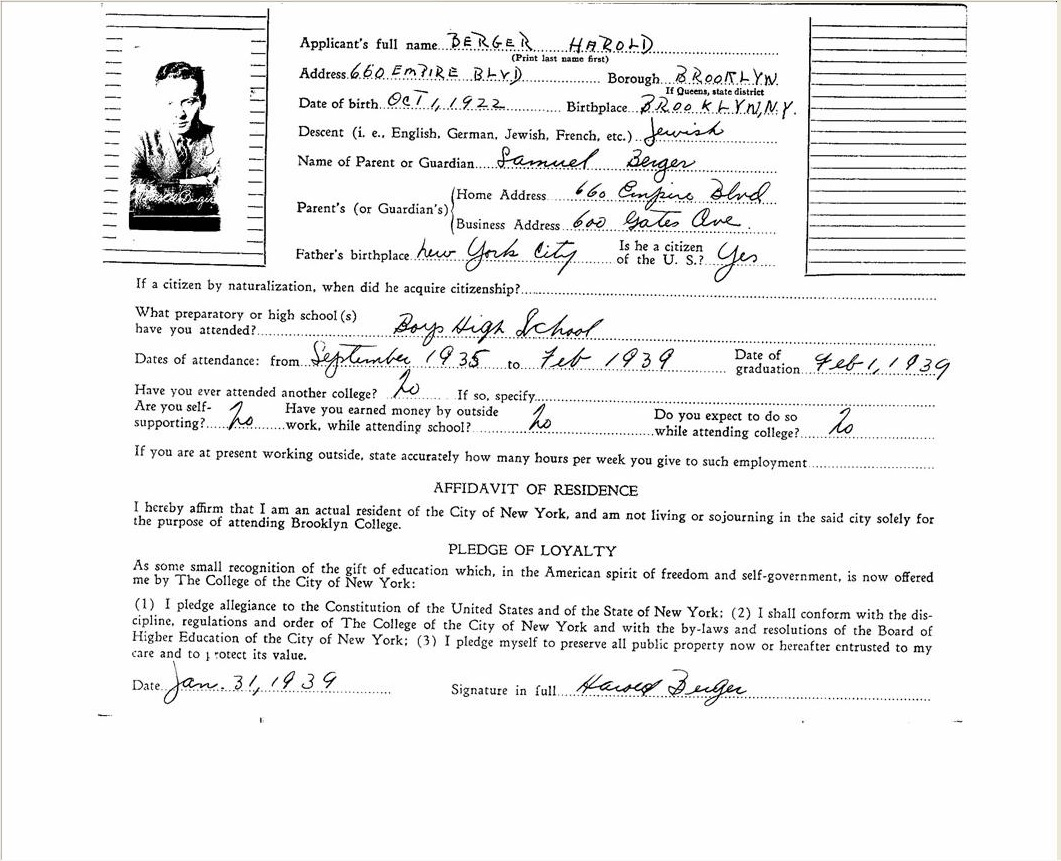 Applicant's full name BERGER HAROLD
(Print last name first)
Address 660 EMPIRE BLVD Borough BROOKLYN
If Queens, state district
Date of birth OCT 1, 1922 Birthplace BROOKLYN, N.Y.
Descent (i. e., English, German, Jewish, French, etc.) Jewish
Name of Parent or Guardian Samuel Berger
Parent's (or Guardian's)
Home Address 660 Empire Blvd
Business Address 600 Gates Ave.
Father's birthplace New York City Is he a citizen of the U. S.? Yes
Harold Berger
If a citizen by naturalization, when did he acquire citizenship?
What preparatory or high school(s)
have you attended? Boys High School
Dates of attendance: from September 1935 to Feb 1939 Date of graduation Feb 1, 1939
Have you ever attended another college? No If so, specify
Are you self-supporting? No Have you earned money by outside work, while attending school? No Do you expect to do so while attending college? No
If you are at present working outside, state accurately how many hours per week you give to such employment
AFFIDAVIT OF RESIDENCE
I hereby affirm that I am an actual resident of the City of New York, and am not living or sojourning in the said city solely for
the purpose of attending Brooklyn College.
PLEDGE OF LOYALTY
As some small recognition of the gift of education which, in the American spirit of freedom and self-government, is now offered
me by The College of the City of New York:
(1) I pledge allegiance to the Constitution of the United States and of the State of New York; (2) I shall conform with the dis-
cipline, regulations and order of The College of the City of New York and with the by-laws and resolutions of the Board of
Higher Education of the City of New York; (3) I pledge myself to preserve all public property now or hereafter entrusted to my
care and to protect its value.
Date Jan. 31, 1939 Signature in full Harold Berger